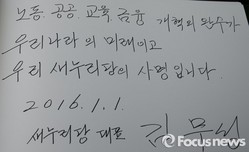 노동. 공공. 교육. 금융 개혁의 완수가
우리나라의 미래이고
우리 새누리당의 사명입니다.
2016. 1. 1.
새누리당 대표 김무성
Focusnews